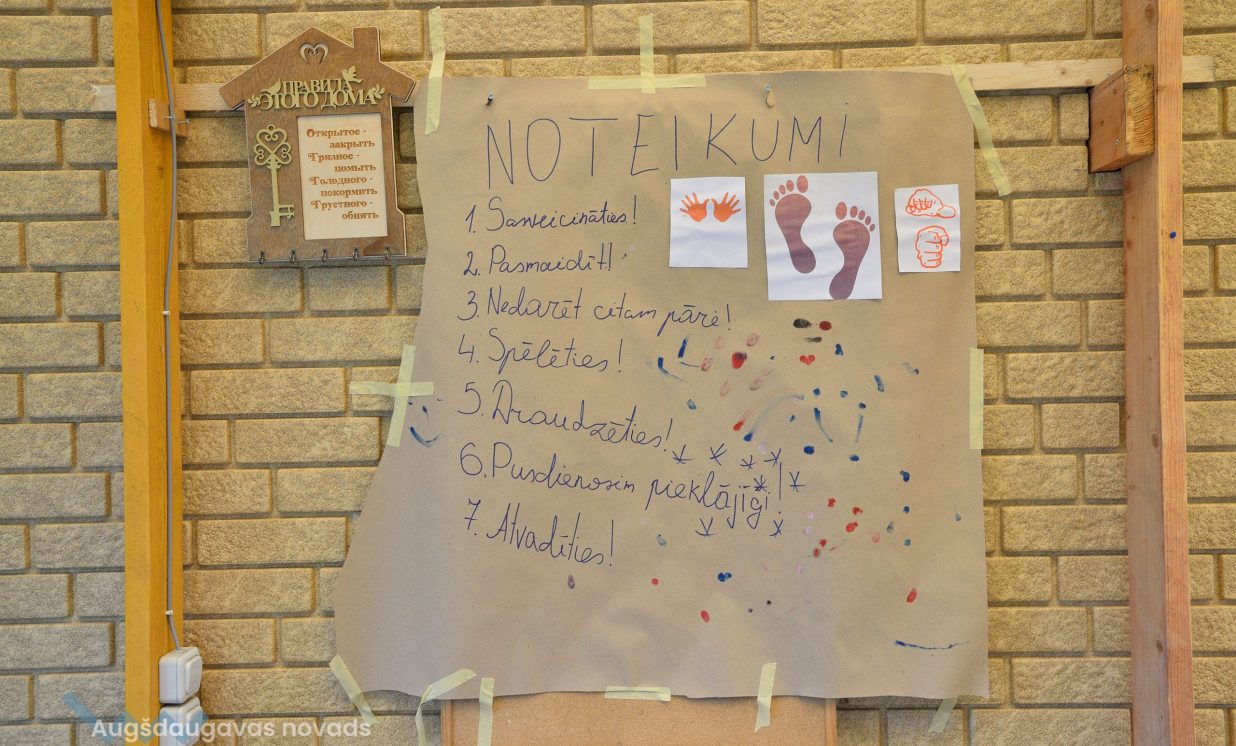 ПРАВИЛА
ЭТОГО ДОМА
Открытое -
закрыть
Грязное -
помыть
Голодного -
покормить
Грустного -
обнять
NOTEIKUMI
1. Sasveicināties!
2. Pasmaidīt!
3. Nedarīt citam pāri!
4. Spēlēties!
5. Draudzēties!
6. Pusdienosim pieklājīgi!
7. Atvadīties!
Augšdaugavas novads